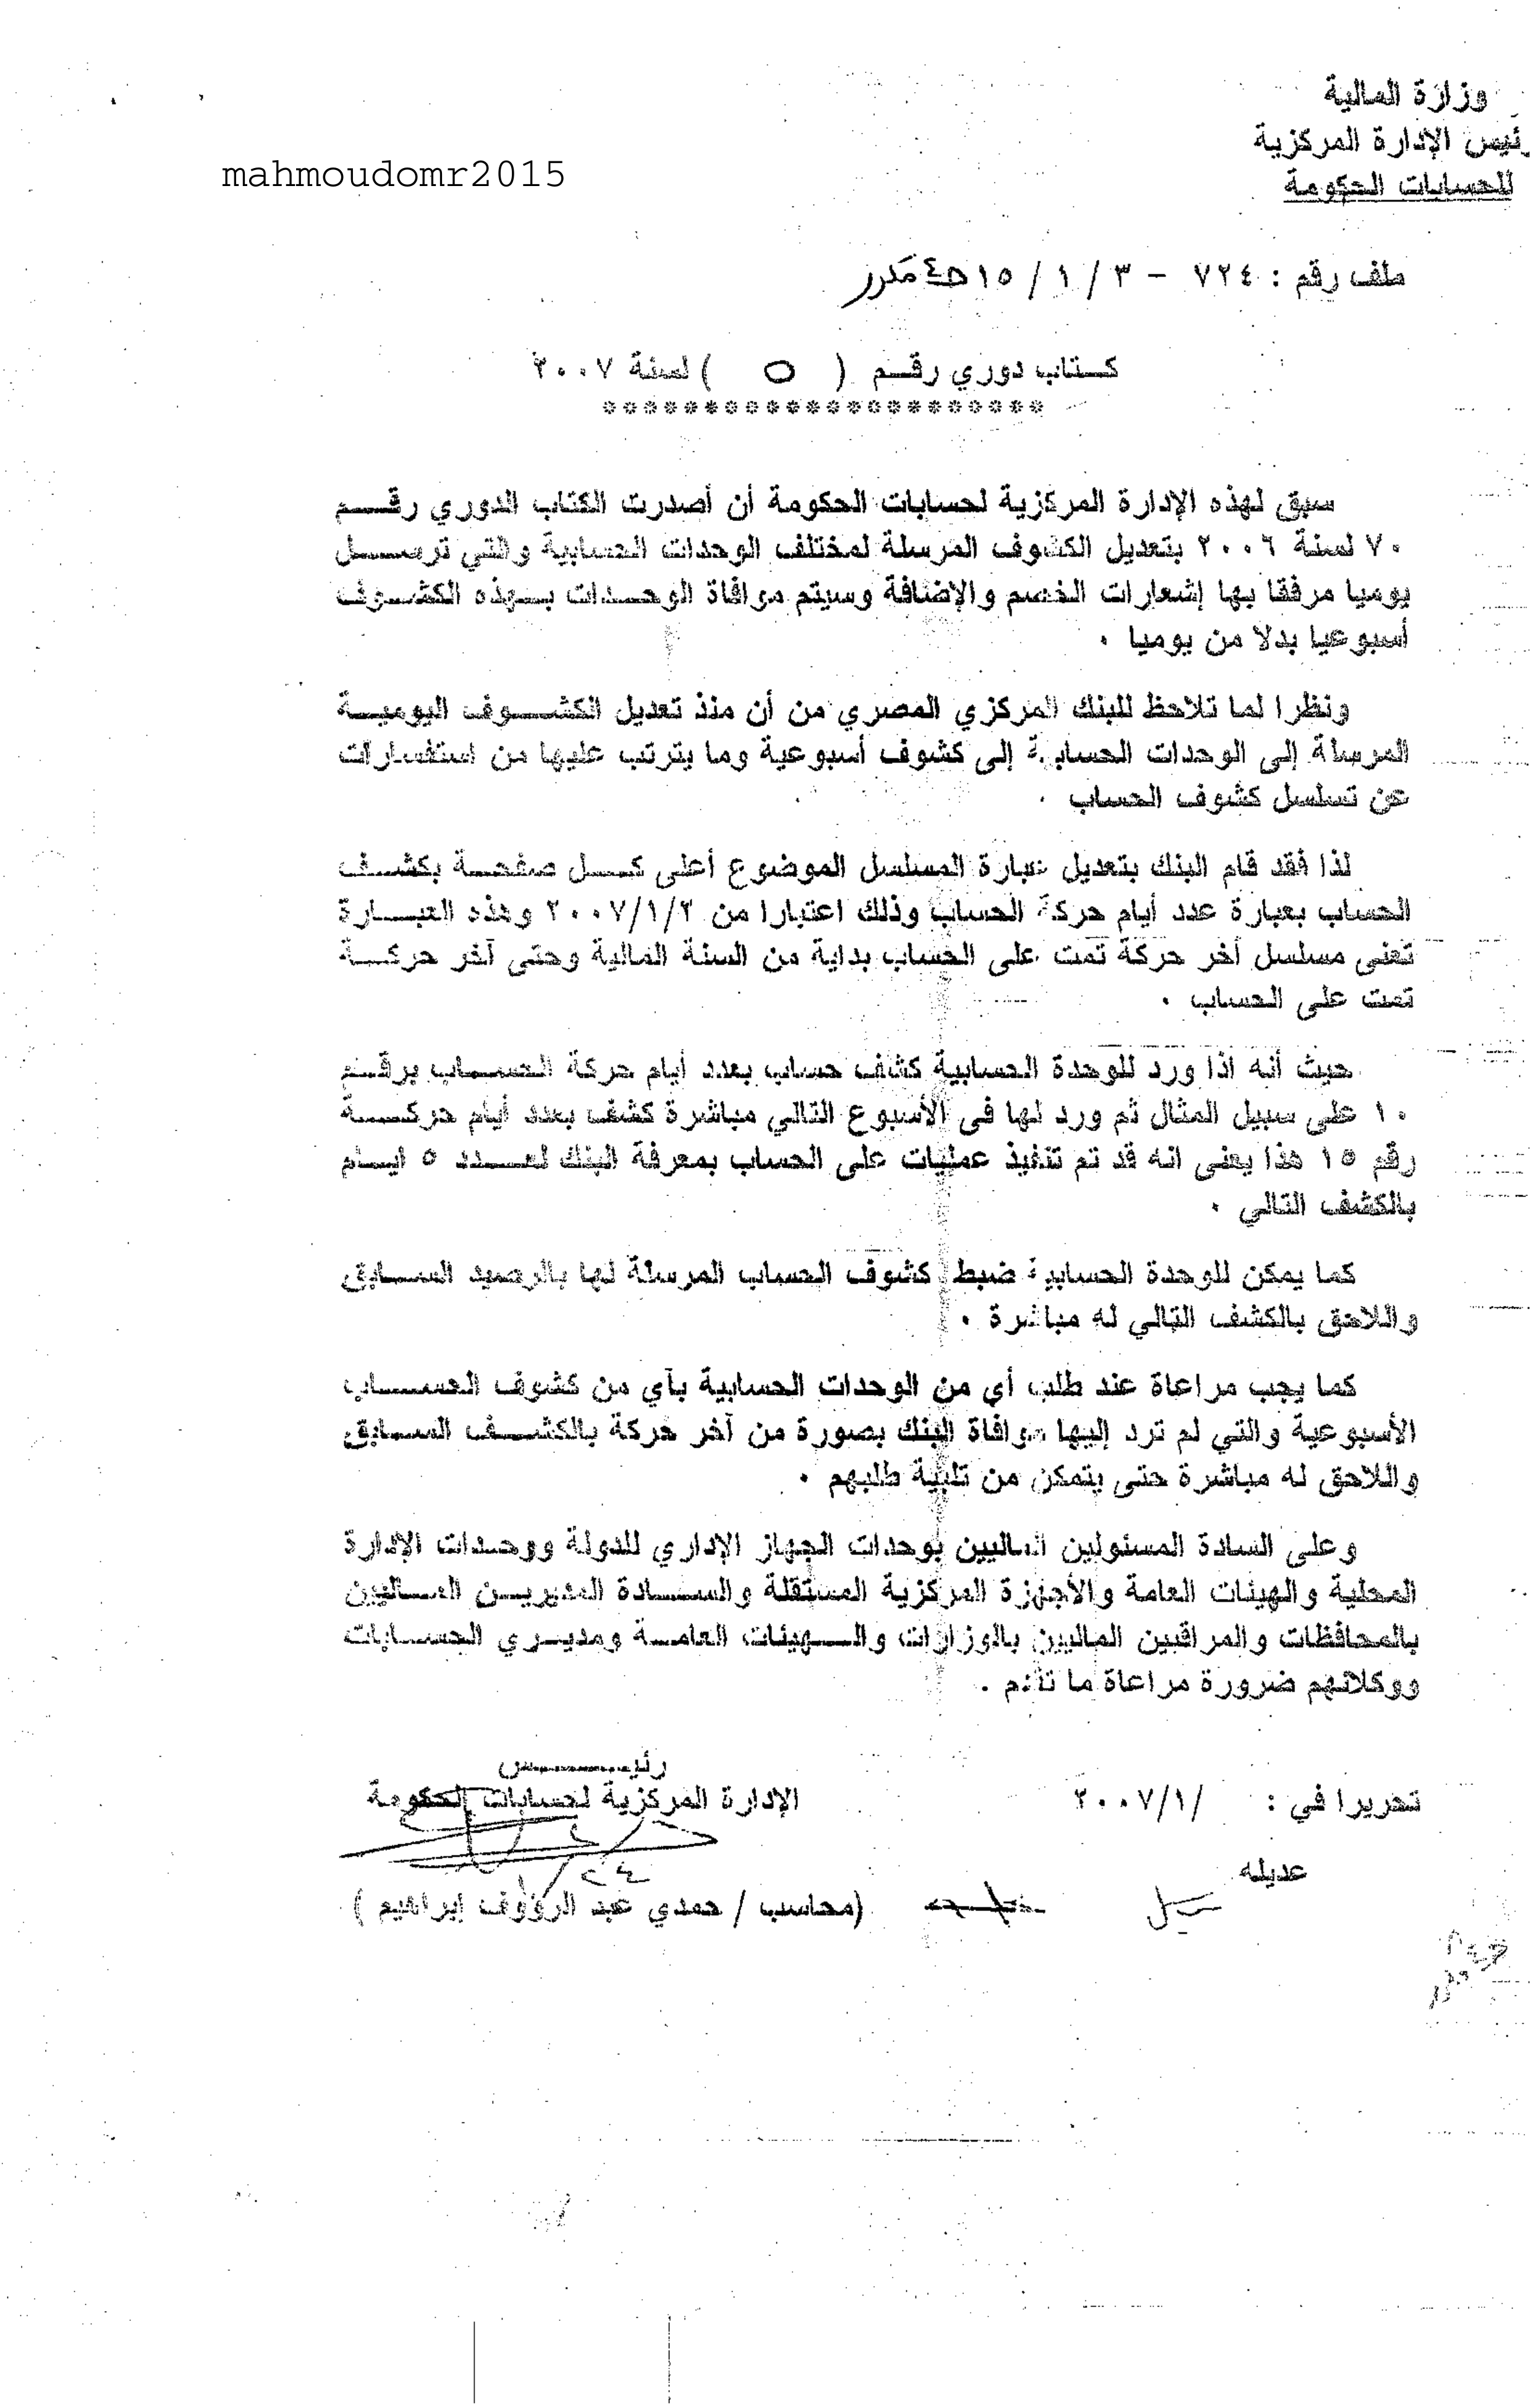 وزارة المالية
رئيس الإدارة المركزية
للحسابات الحكومة
mahmoudomr2015
ملف رقم : ٧٢٤ - ٣ / ١ / ١٥ مكرر
كـتاب دوري رقـم ( ٥ ) لسنة ٢٠٠٧
**********************
سبق لهذه الإدارة المركزية لحسابات الحكومة أن أصدرت الكتاب الدوري رقـــم
٧٠ لسنة ٢٠٠٦ بتعديل الكشوف المرسلة لمختلف الوحدات الحسابية والتي ترســـل
يوميا مرفقا بها إشعارات الخصم والإضافة وسيتم موافاة الوحـــدات بـــهذه الكشـــوف
أسبوعيا بدلا من يوميا .
ونظرا لما تلاحظ للبنك المركزي المصري من أن منذ تعديل الكشـــوف اليوميـــة
المرسلة إلى الوحدات الحسابية إلى كشوف أسبوعية وما يترتب عليها من استفسارات
عن تسلسل كشوف الحساب .
لذا فقد قام البنك بتعديل عبارة المسلسل الموضوع أعلى كـــل صفحـــة بكشـــف
الحساب بعبارة عدد أيام حركة الحساب وذلك اعتبارا من ٢٠٠٧/١/٢ وهذه العبـــارة
تعنى مسلسل أخر حركة تمت على الحساب بداية من السنة المالية وحتى آخر حركـــة
تمت على الحساب .
حيث أنه اذا ورد للوحدة الحسابية كشف حساب بعدد أيام حركة الحســـاب برقـــم
١٠ على سبيل المثال ثم ورد لها فى الأسبوع التالي مباشرة كشف بعدد أيام حركـــة
رقم ١٥ هذا يعنى انه قد تم تنفيذ عمليات على الحساب بمعرفة البنك لعـــدد ٥ ايـــام
بالكشف التالي .
كما يمكن للوحدة الحسابية ضبط كشوف الحساب المرسلة لها بالرصيد الســـابق
واللاحق بالكشف التالي له مباشرة .
كما يجب مراعاة عند طلب أي من الوحدات الحسابية بآي من كشوف الحســـاب
الأسبوعية والتي لم ترد إليها موافاة البنك بصورة من آخر حركة بالكشـــف الســـابق
واللاحق له مباشرة حتى يتمكن من تلبية طلبهم .
وعلى السادة المسئولين الماليين بوحدات الجهاز الإداري للدولة ووحـــدات الإدارة
المحلية والهيئات العامة والأجهزة المركزية المستقلة والســـادة المديريـــن المـــاليين
بالمحافظات والمراقبين الماليين بالوزارات والـــهيئات العامـــة ومديـــري الحســـابات
ووكلائهم ضرورة مراعاة ما تقدم .
رئيـــــس
تحريرا في : /٢٠٠٧/١
الإدارة المركزية لحسابات الحكومة
عديله
(محاسب / حمدي عبد الرؤوف إبراهيم )